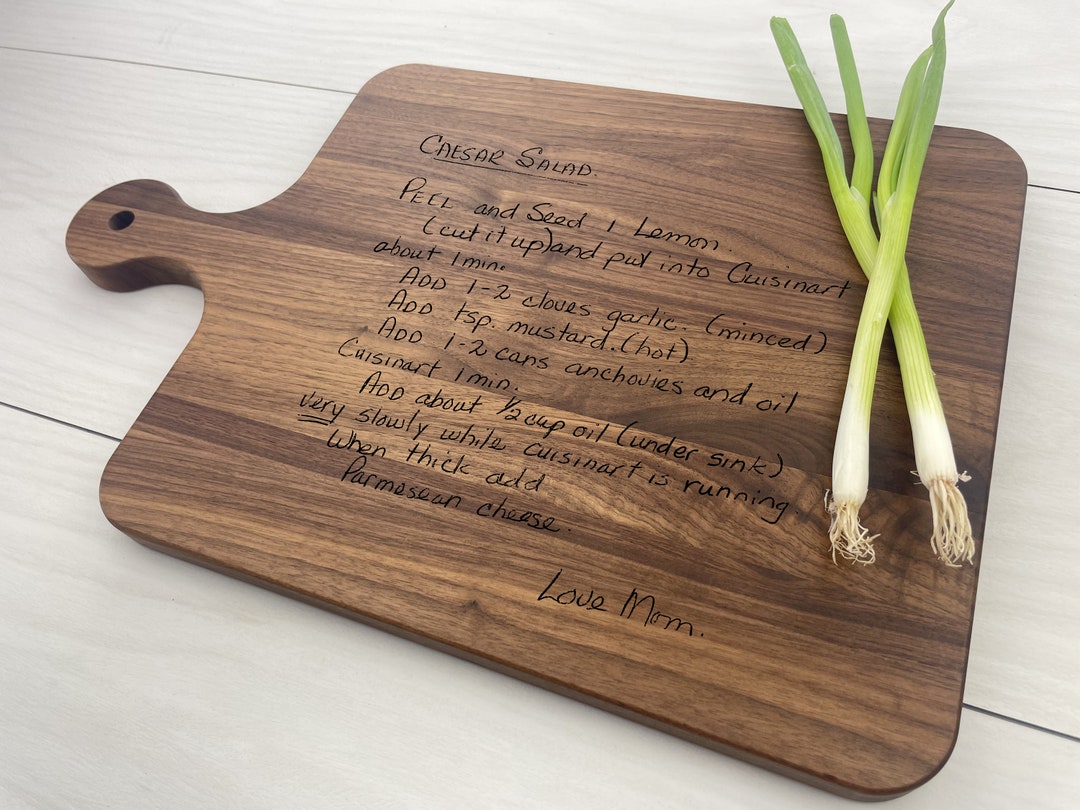 CAESAR SALAD.
PEEL and Seed 1 Lemon.
(cut it up) and put into Cuisinart
about 1 min.
ADD 1-2 cloves garlic. (minced)
ADD tsp. mustard. (hot)
ADD 1-2 cans anchovies and oil
Cuisinart 1 min.
ADD about ½ cup oil (under sink)
very slowly while cuisinart is running.
When thick add
Parmesean cheese.
Love Mom.